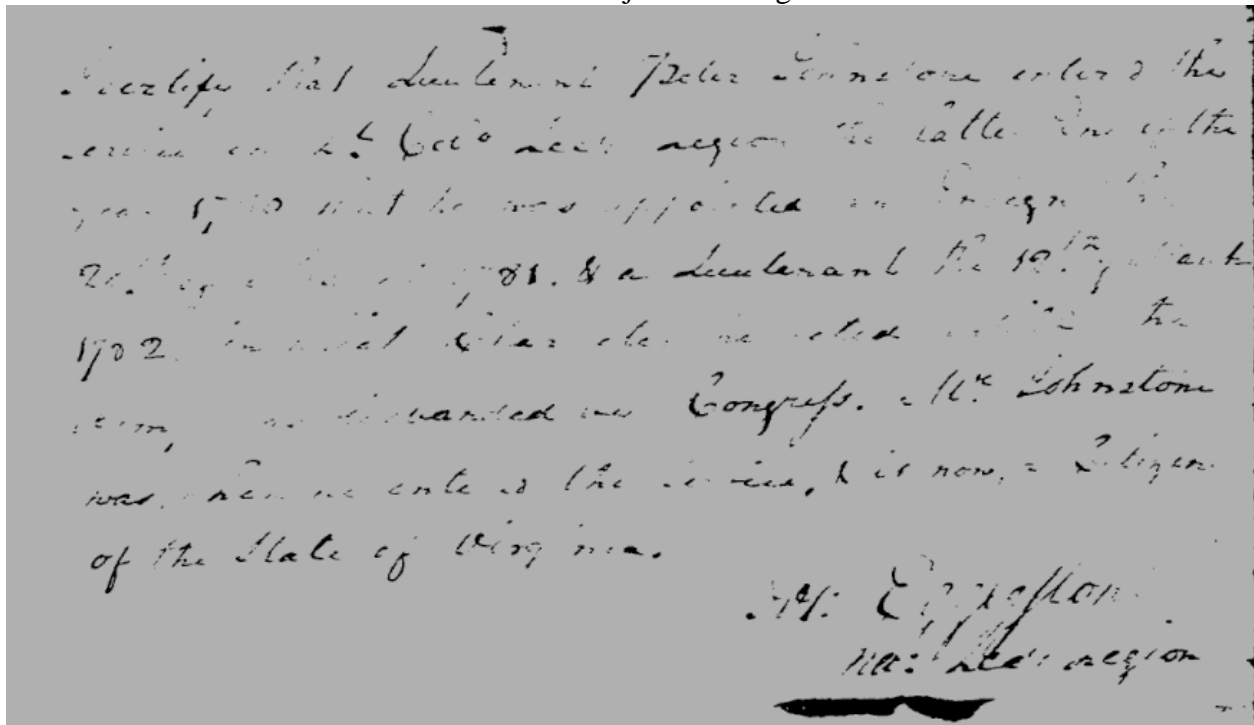 I certify that Lieutenant Peter Johnstone enter'd the
service in Lt. Colo Lee's Legion the latter End of the
year 1780 that he was appointed an Ensign the
1781. & a Lieutenant the of March
1782. in which he acted untill the
army was disbanded Congress. Mr. Johnstone
was, when he enter'd the service, & is now, a Citizen
of the State of Virginia.
Eggleston
Lee's Legion